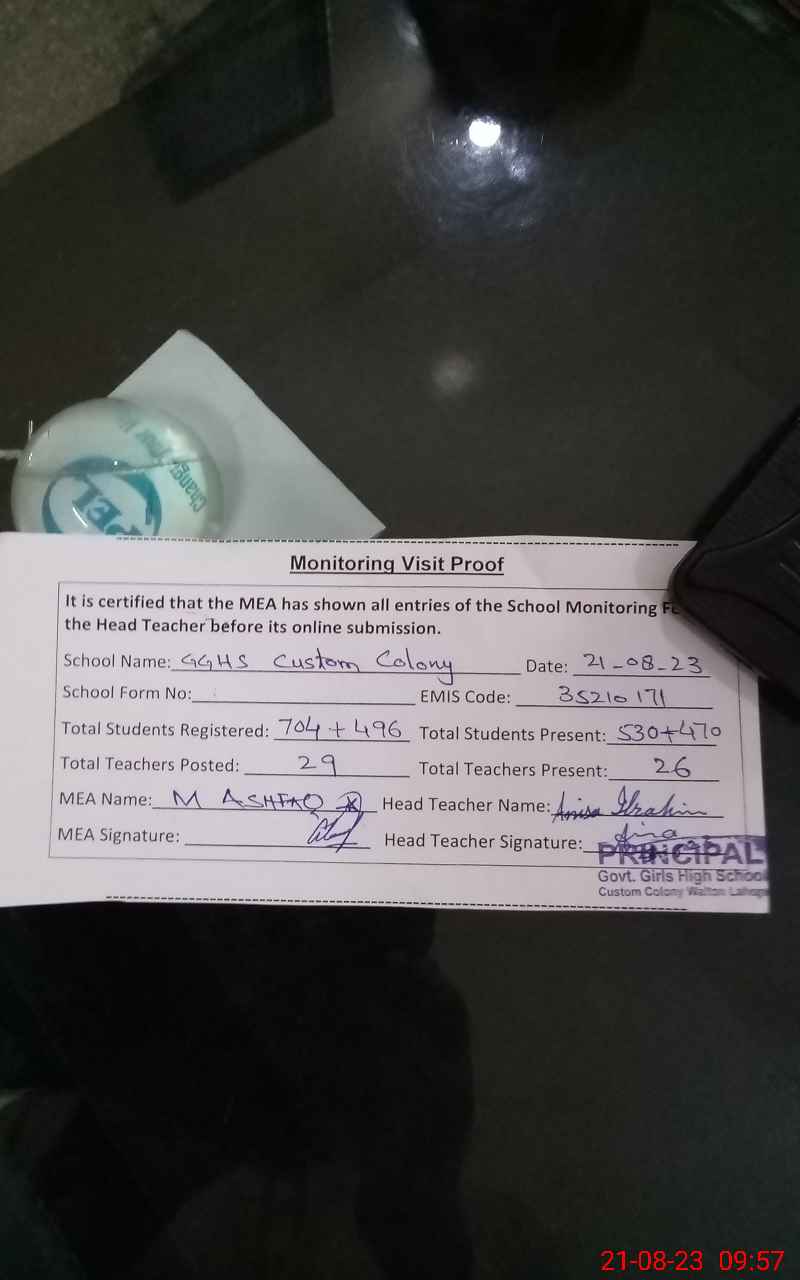 PEL
Change Your
Monitoring Visit Proof
It is certified that the MEA has shown all entries of the School Monitoring
the Head Teacher before its online submission.
School Name: GGHS Custom Colony Date: 21-08-23
School Form No: EMIS Code: 35210171
Total Students Registered: 704+496 Total Students Present: 530+470
Total Teachers Posted: 29 Total Teachers Present: 26
MEA Name: M ASHFAQ Head Teacher Name: Anisa Ibrahim
MEA Signature: Head Teacher Signature:
PRINCIPAL
Govt. Girls High School
Custom Colony Walton Lahore
21-08-23 09:57